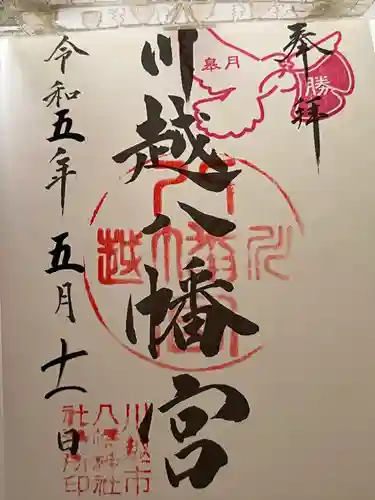 奉拝
勝
皐月
川越八幡宮
令和五年五月十一日
川越市
八幡神社
社務所印